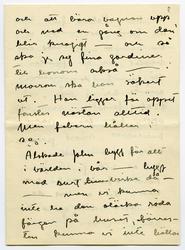 och att bära vagnen upp
och ned en gång om dan
blir knogigt — och så
ska jag sy fina gardiner
till honom också. I
morron ska han säkert
ut. Han ligger för öppet
fönster nästan alltid.
Men febern håller i
sig.
Älskade John bygg för allt
i världen vår bygg
med burt — då
— men vi kunna
inte ha den elaka röda
färgen på huset, förres-
ten kunna vi inte kalla